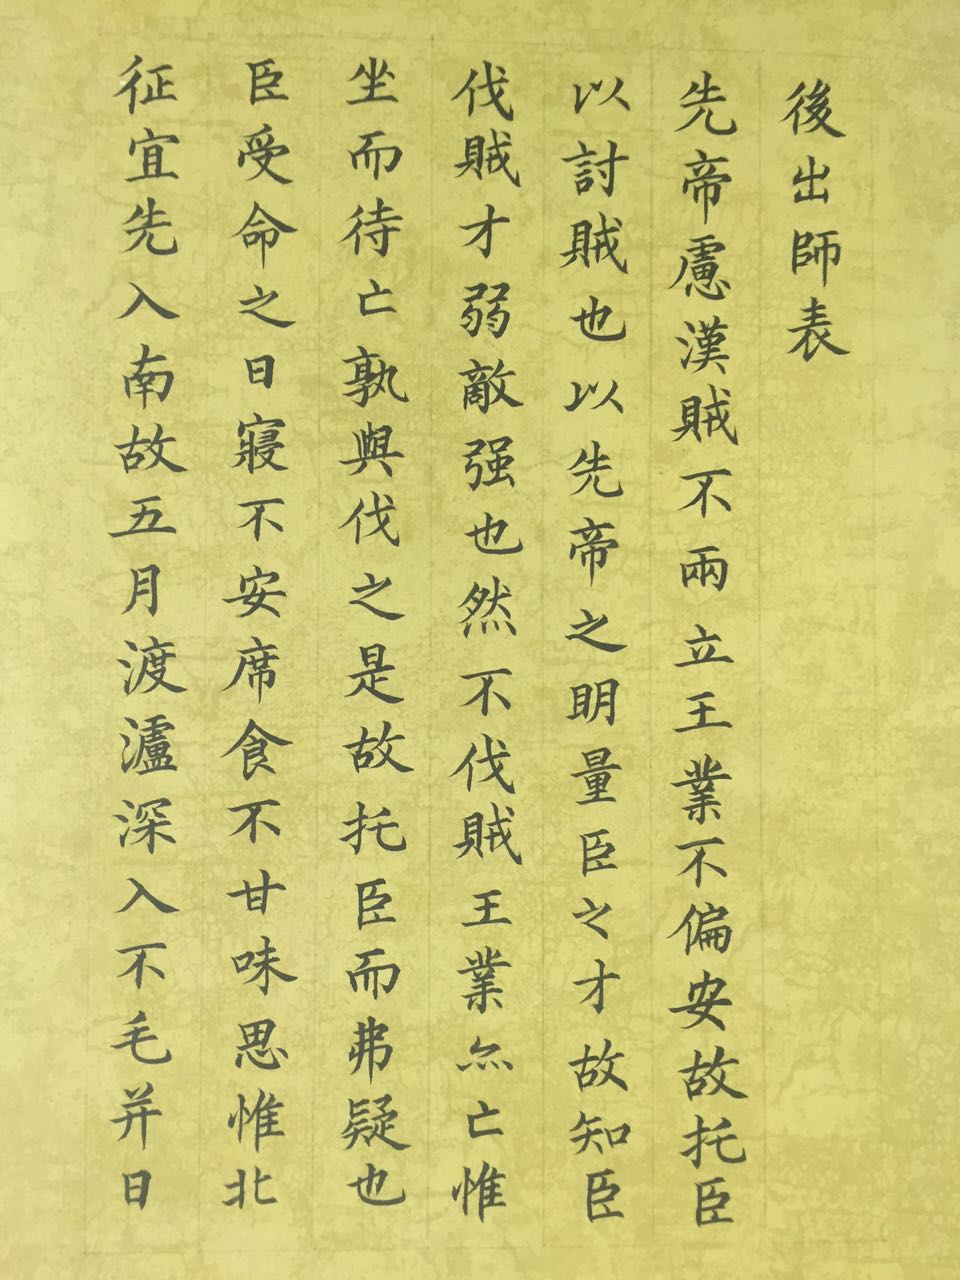 後出師表
先帝慮漢賊不兩立王業不偏安故托臣
以討賊也以先帝之明量臣之才故知臣
伐賊才弱敵强也然不伐賊王業亦亡惟
坐而待亡孰與伐之是故托臣而弗疑也
臣受命之日寢不安席食不甘味思惟北
征宜先入南故五月渡瀘深入不毛并日